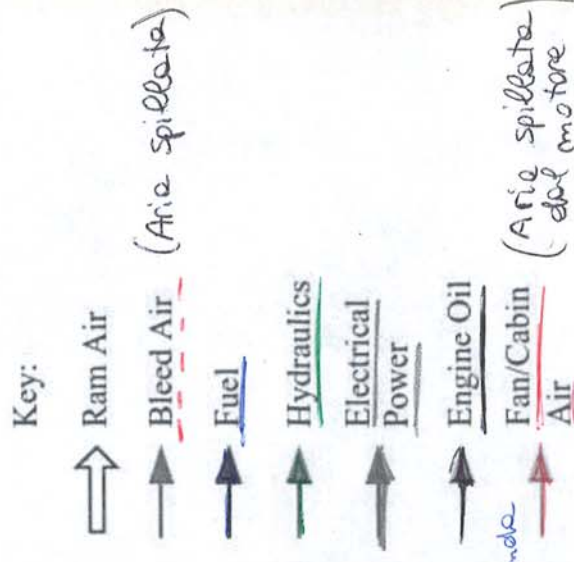 Key:
Ram Air
Bleed Air (Aria spillata)
Fuel
Hydraulics
Electrical
Power
Engine Oil
Fan/Cabin (Aria spillata
Air dal motore